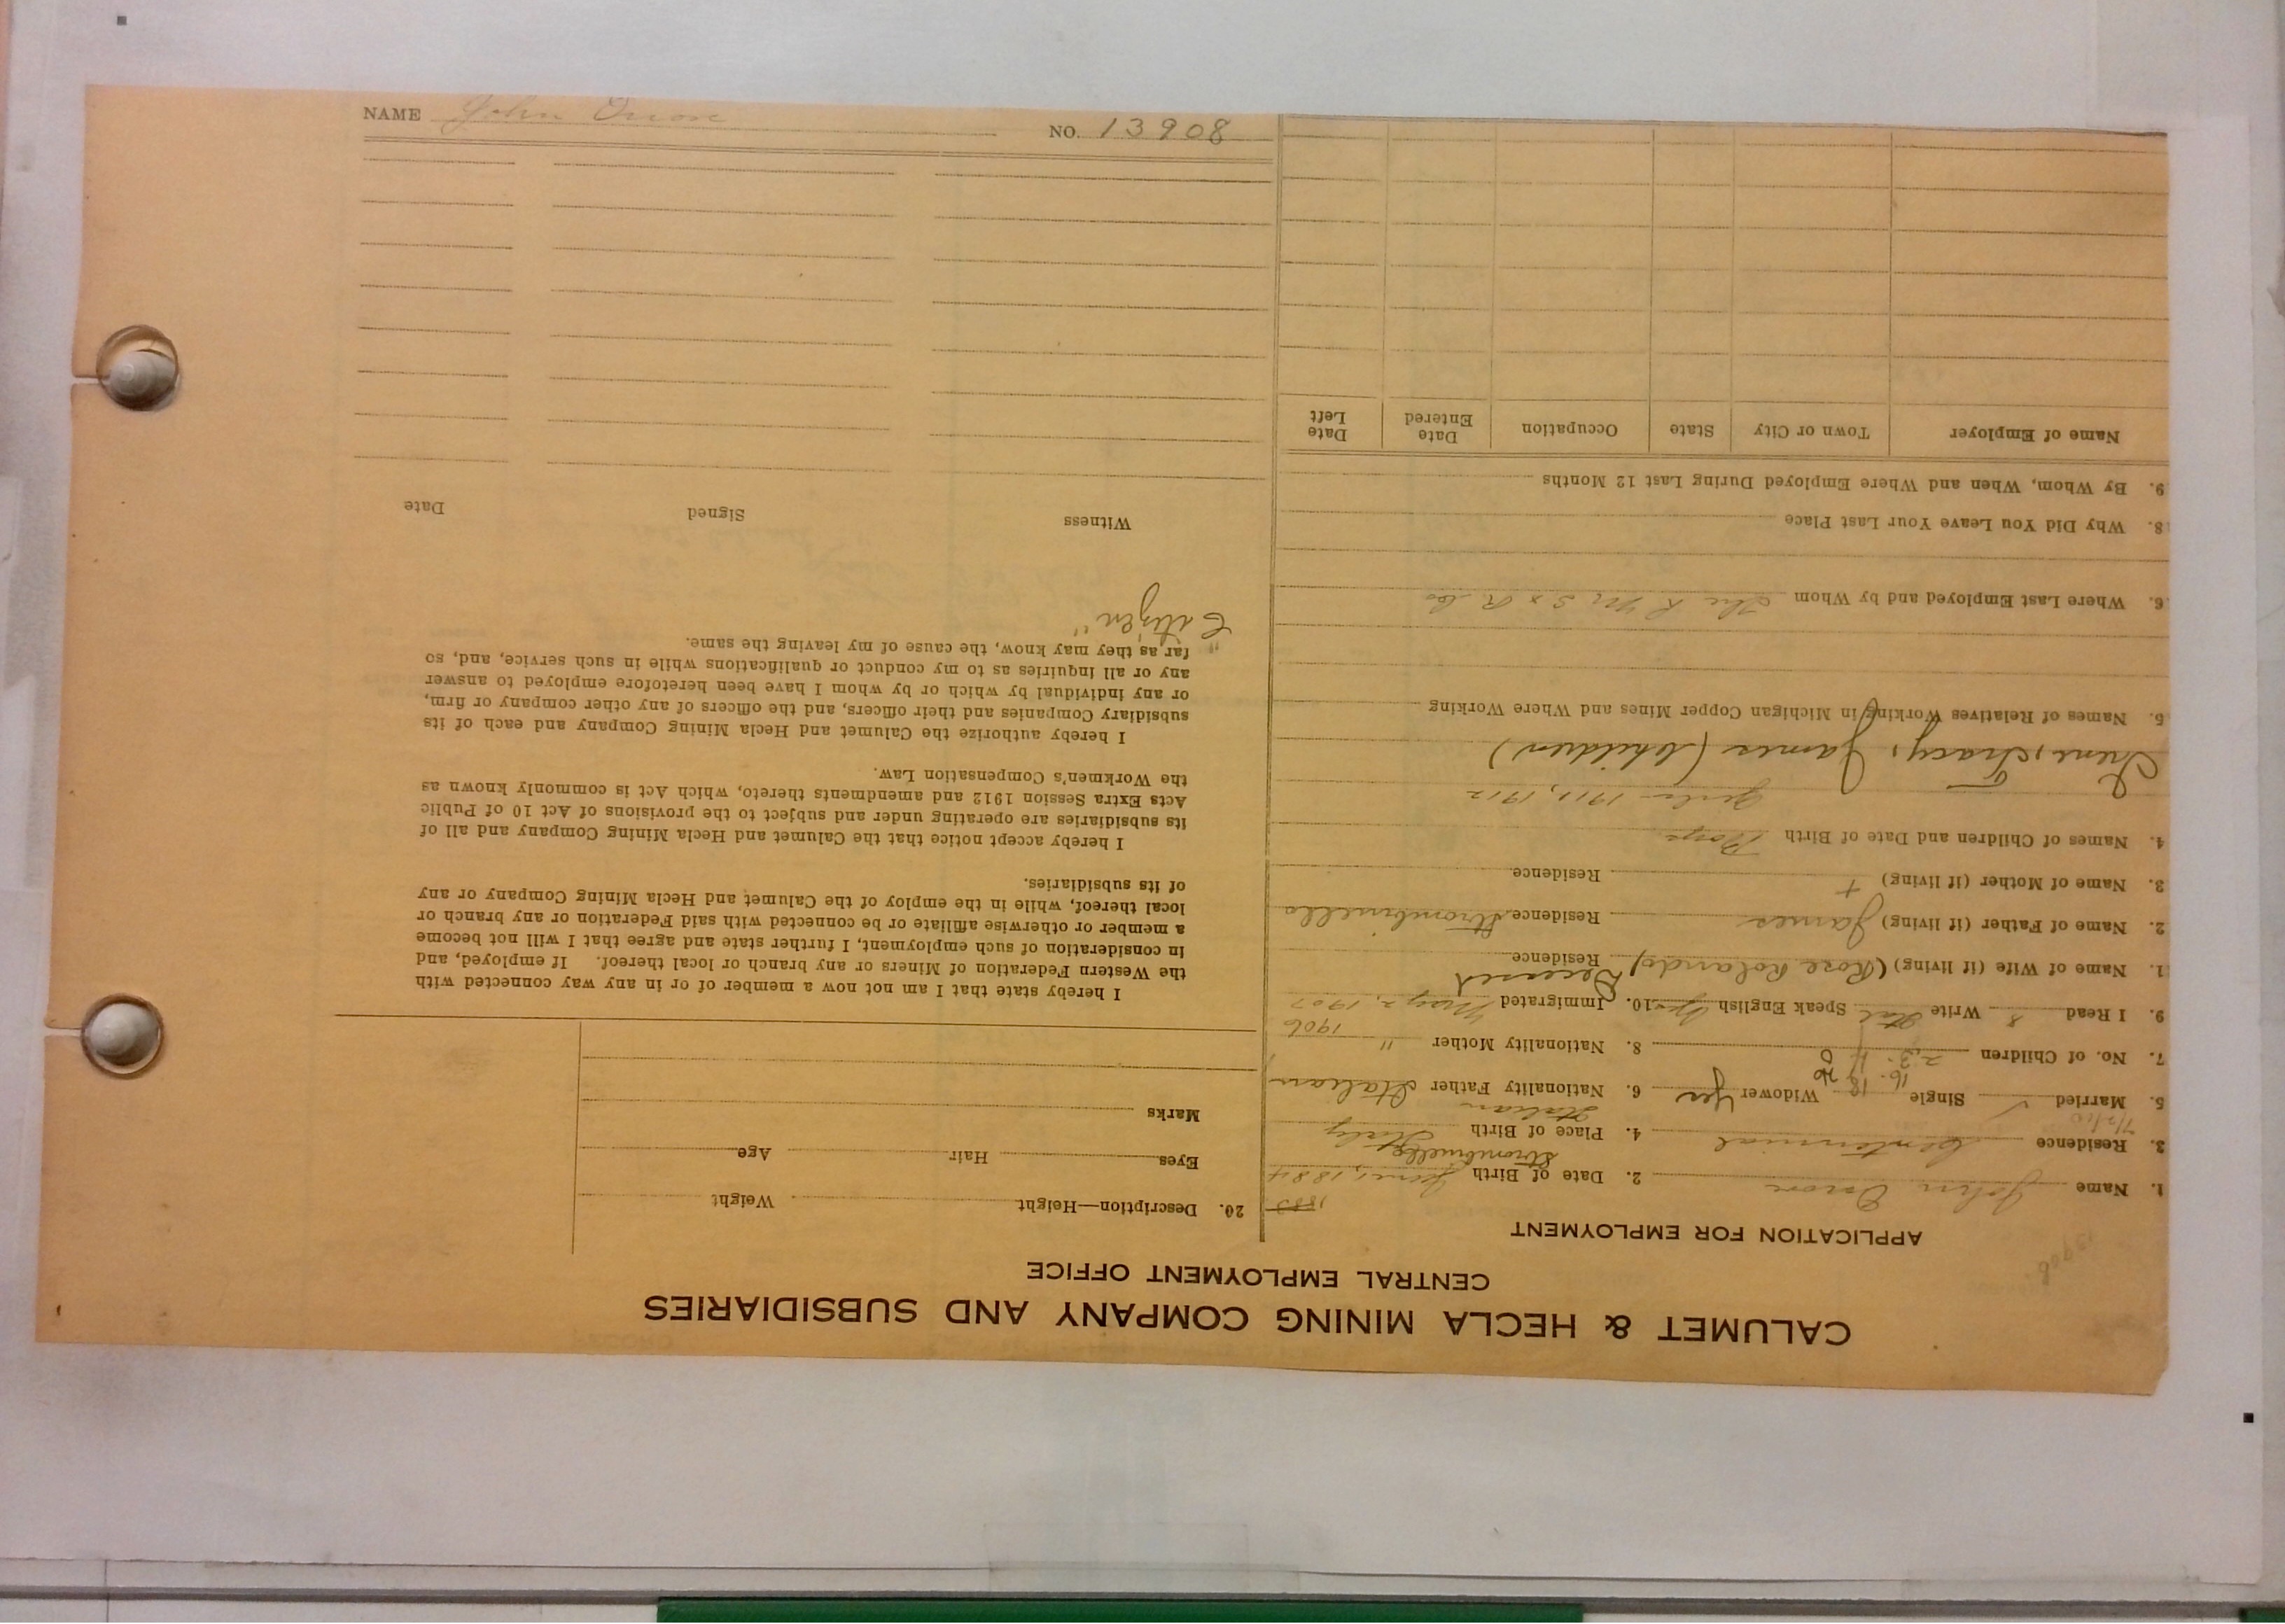 CALUMET & HECLA MINING COMPANY AND SUBSIDIARIES
CENTRAL EMPLOYMENT OFFICE
APPLICATION FOR EMPLOYMENT
13908
1. Name John
2. Date of Birth June 1, 1884
1883
3. Residence Centennial
4. Place of Birth Italy
Italian
5. Married Single Widower Yes
6. Nationality Father Italian
7. No. of Children
8. Nationality Mother "
1906
9. I Read Write Ital Speak English Yes
10. Immigrated May 2, 1907
11. Name of Wife (if living) (Rose Rolando) Residence Deceased
12. Name of Father (if living) James Residence Strombinello
13. Name of Mother (if living) + Residence
14. Names of Children and Date of Birth Boys
Girls 1911, 1912
Irene, Tracy, James (Children)
15. Names of Relatives Working in Michigan Copper Mines and Where Working
16. Where Last Employed and by Whom The L M S & R Co
18. Why Did You Leave Your Last Place
19. By Whom, When and Where Employed During Last 12 Months
Name of Employer Town or City State Occupation Date Entered Date Left
20. Description—Height Weight
Eyes Hair Age
Marks
I hereby state that I am not now a member of or in any way connected with
the Western Federation of Miners or any branch or local thereof. If employed, and
in consideration of such employment, I further state and agree that I will not become
a member or otherwise affiliate or be connected with said Federation or any branch or
local thereof, while in the employ of the Calumet and Hecla Mining Company or any
of its subsidiaries.
I hereby accept notice that the Calumet and Hecla Mining Company and all of
its subsidiaries are operating under and subject to the provisions of Act 10 of Public
Acts Extra Session 1912 and amendments thereto, which Act is commonly known as
the Workmen's Compensation Law.
I hereby authorize the Calumet and Hecla Mining Company and each of its
subsidiary Companies and their officers, and the officers of any other company or firm,
or any individual by which or by whom I have been heretofore employed to answer
any or all inquiries as to my conduct or qualifications while in such service, and, so
far as they may know, the cause of my leaving the same.
"Citizen"
Witness Signed Date
NAME John
NO. 13908